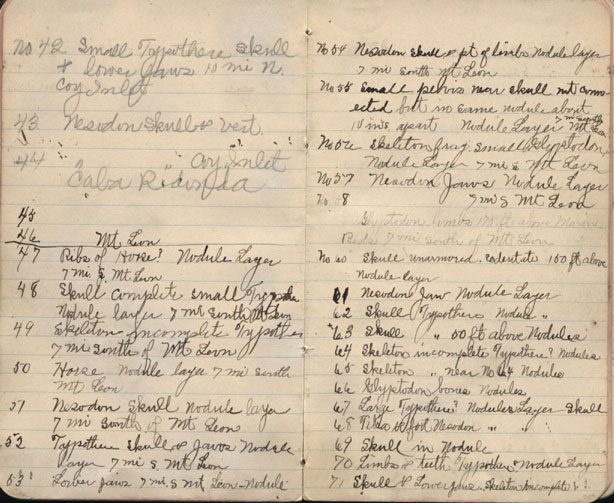 No 42 Small Typothere Skull
& lower Jaws 10 mi N.
Coy Inlet
43 Nesodon Skull & Vert.
44 " " Coy Inlet
45
46 Mt Leon
47 Ribs of Horse? Nodule Layer
7 mi. S. Mt Leon
48 Skull complete small Typothere
Nodule layer 7 mi South Mt Leon
49 Skeleton incomplete Typothere
7 mi South of Mt Leon
50 Horse Nodule layer 7 mi South
Mt Leon
51 Nesodon Skull nodule layer
7 mi South of Mt Leon
52 Typothere Skull & Jaws Nodule
layer 7 mi S Mt Leon
53 Lower jaws 7 mi S Mt Leon Nodule
No 54 Nesodon Skull & pt of limbs Nodule layer
7 mi South Mt Leon
No 55 Small pelvis near skull not conn-
ected but in same nodule about
10 ins apart Nodule Layer 7 mi South Mt Leon
No 56 Skeleton frag. small Glyptodon
Nodule Layer 7 mi S Mt Leon
No 57 Nesodon Jaws Nodule Layer
7 mi S Mt Leon
No 8
Glyptodon limbs 175 ft above Marine
Beds 7 mi South of Mt Leon
No 60 Skull unarmored edentate 150 ft above
Nodule layer
61 Nesodon Jaw Nodule Layer
62 Skull (Typothere Nodule "
63 Skull " 50 ft above Nodules
64 Skeleton incomplete Typothere? Nodules
65 Skeleton " near No 64 Nodules
66 Glyptodon bones Nodules
67 Large Typothere? Nodules Layer Skull
68 Tibia & foot Nesodon " "
69 Skull in Nodule
70 Limbs & teeth Typothere Nodule Layer
71 Skull & Lower Jaws Skeleton incomplete